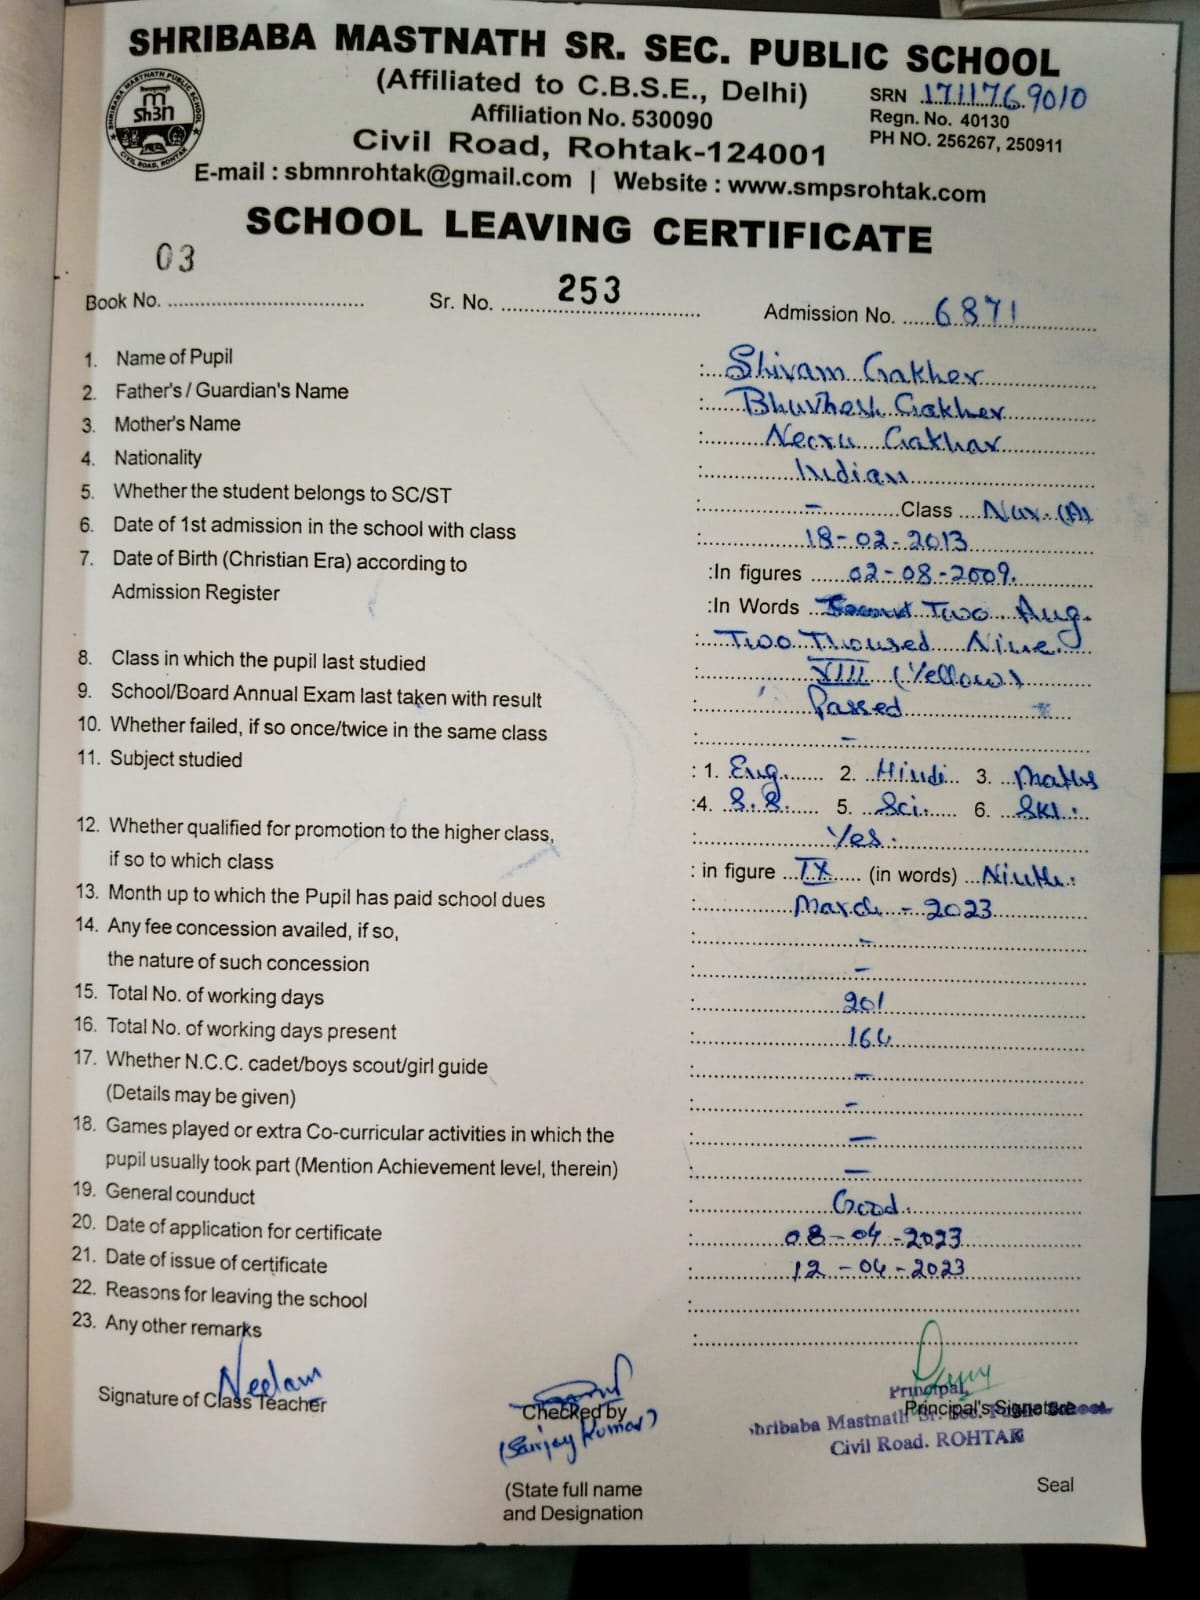 SHRIBABA MASTNATH SR. SEC. PUBLIC SCHOOL
(Affiliated to C.B.S.E., Delhi)
SRN 1711769010
Affiliation No. 530090
Regn. No. 40130
Civil Road, Rohtak-124001
PH NO. 256267, 250911
E-mail : sbmnrohtak@gmail.com | Website : www.smpsrohtak.com
SCHOOL LEAVING CERTIFICATE
Book No. 03 Sr. No. 253 Admission No. 6871
1. Name of Pupil : Shivam Gakher
2. Father's / Guardian's Name : Bhuvnesh Gakher
3. Mother's Name : Neeru Gakhar
4. Nationality : Indian
5. Whether the student belongs to SC/ST : - Class Nur. (A)
6. Date of 1st admission in the school with class : 18-02-2013
7. Date of Birth (Christian Era) according to :In figures 02-08-2009.
Admission Register :In Words Two Aug.
: Two Thoused Nine.
8. Class in which the pupil last studied : VIII (Yellow)
9. School/Board Annual Exam last taken with result : Passed
10. Whether failed, if so once/twice in the same class : -
11. Subject studied : 1. Eng. 2. Hindi 3. Maths
:4. S.S. 5. Sci. 6. Skt.
12. Whether qualified for promotion to the higher class, : Yes.
if so to which class : in figure IX (in words) Ninth.
13. Month up to which the Pupil has paid school dues : March - 2023
14. Any fee concession availed, if so, : -
the nature of such concession : -
15. Total No. of working days : 201
16. Total No. of working days present : 164
17. Whether N.C.C. cadet/boys scout/girl guide : -
(Details may be given) : -
18. Games played or extra Co-curricular activities in which the : -
pupil usually took part (Mention Achievement level, therein) : -
19. General counduct : Good.
20. Date of application for certificate : 08-04-2023
21. Date of issue of certificate : 12-04-2023
22. Reasons for leaving the school :
23. Any other remarks :
Neelam
Signature of Class Teacher
Checked by
(Sanjay Kumar)
(State full name
and Designation
Principal,
Principal's Signature
Shribaba Mastnath Sr. Sec. Public School
Civil Road. ROHTAK
Seal